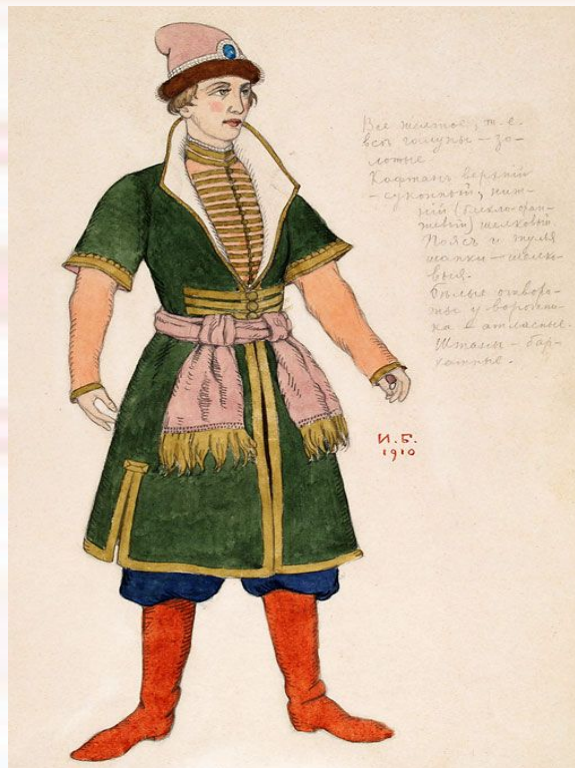 Все желтое, т.е.
все галуны – зо-
лотые.
Кафтанъ верхній
– суконный, ниж-
ній (блекло-оран-
жевый) шелковый.
Поясъ и тулья
шапки – шелко-
выя.
Бѣлые отворо-
ты у воротни-
ка – атласные.
Штаны – бар-
хатные.
И.Б.
1910